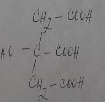 CH2-COOH
C-COOH
CH2-COOH